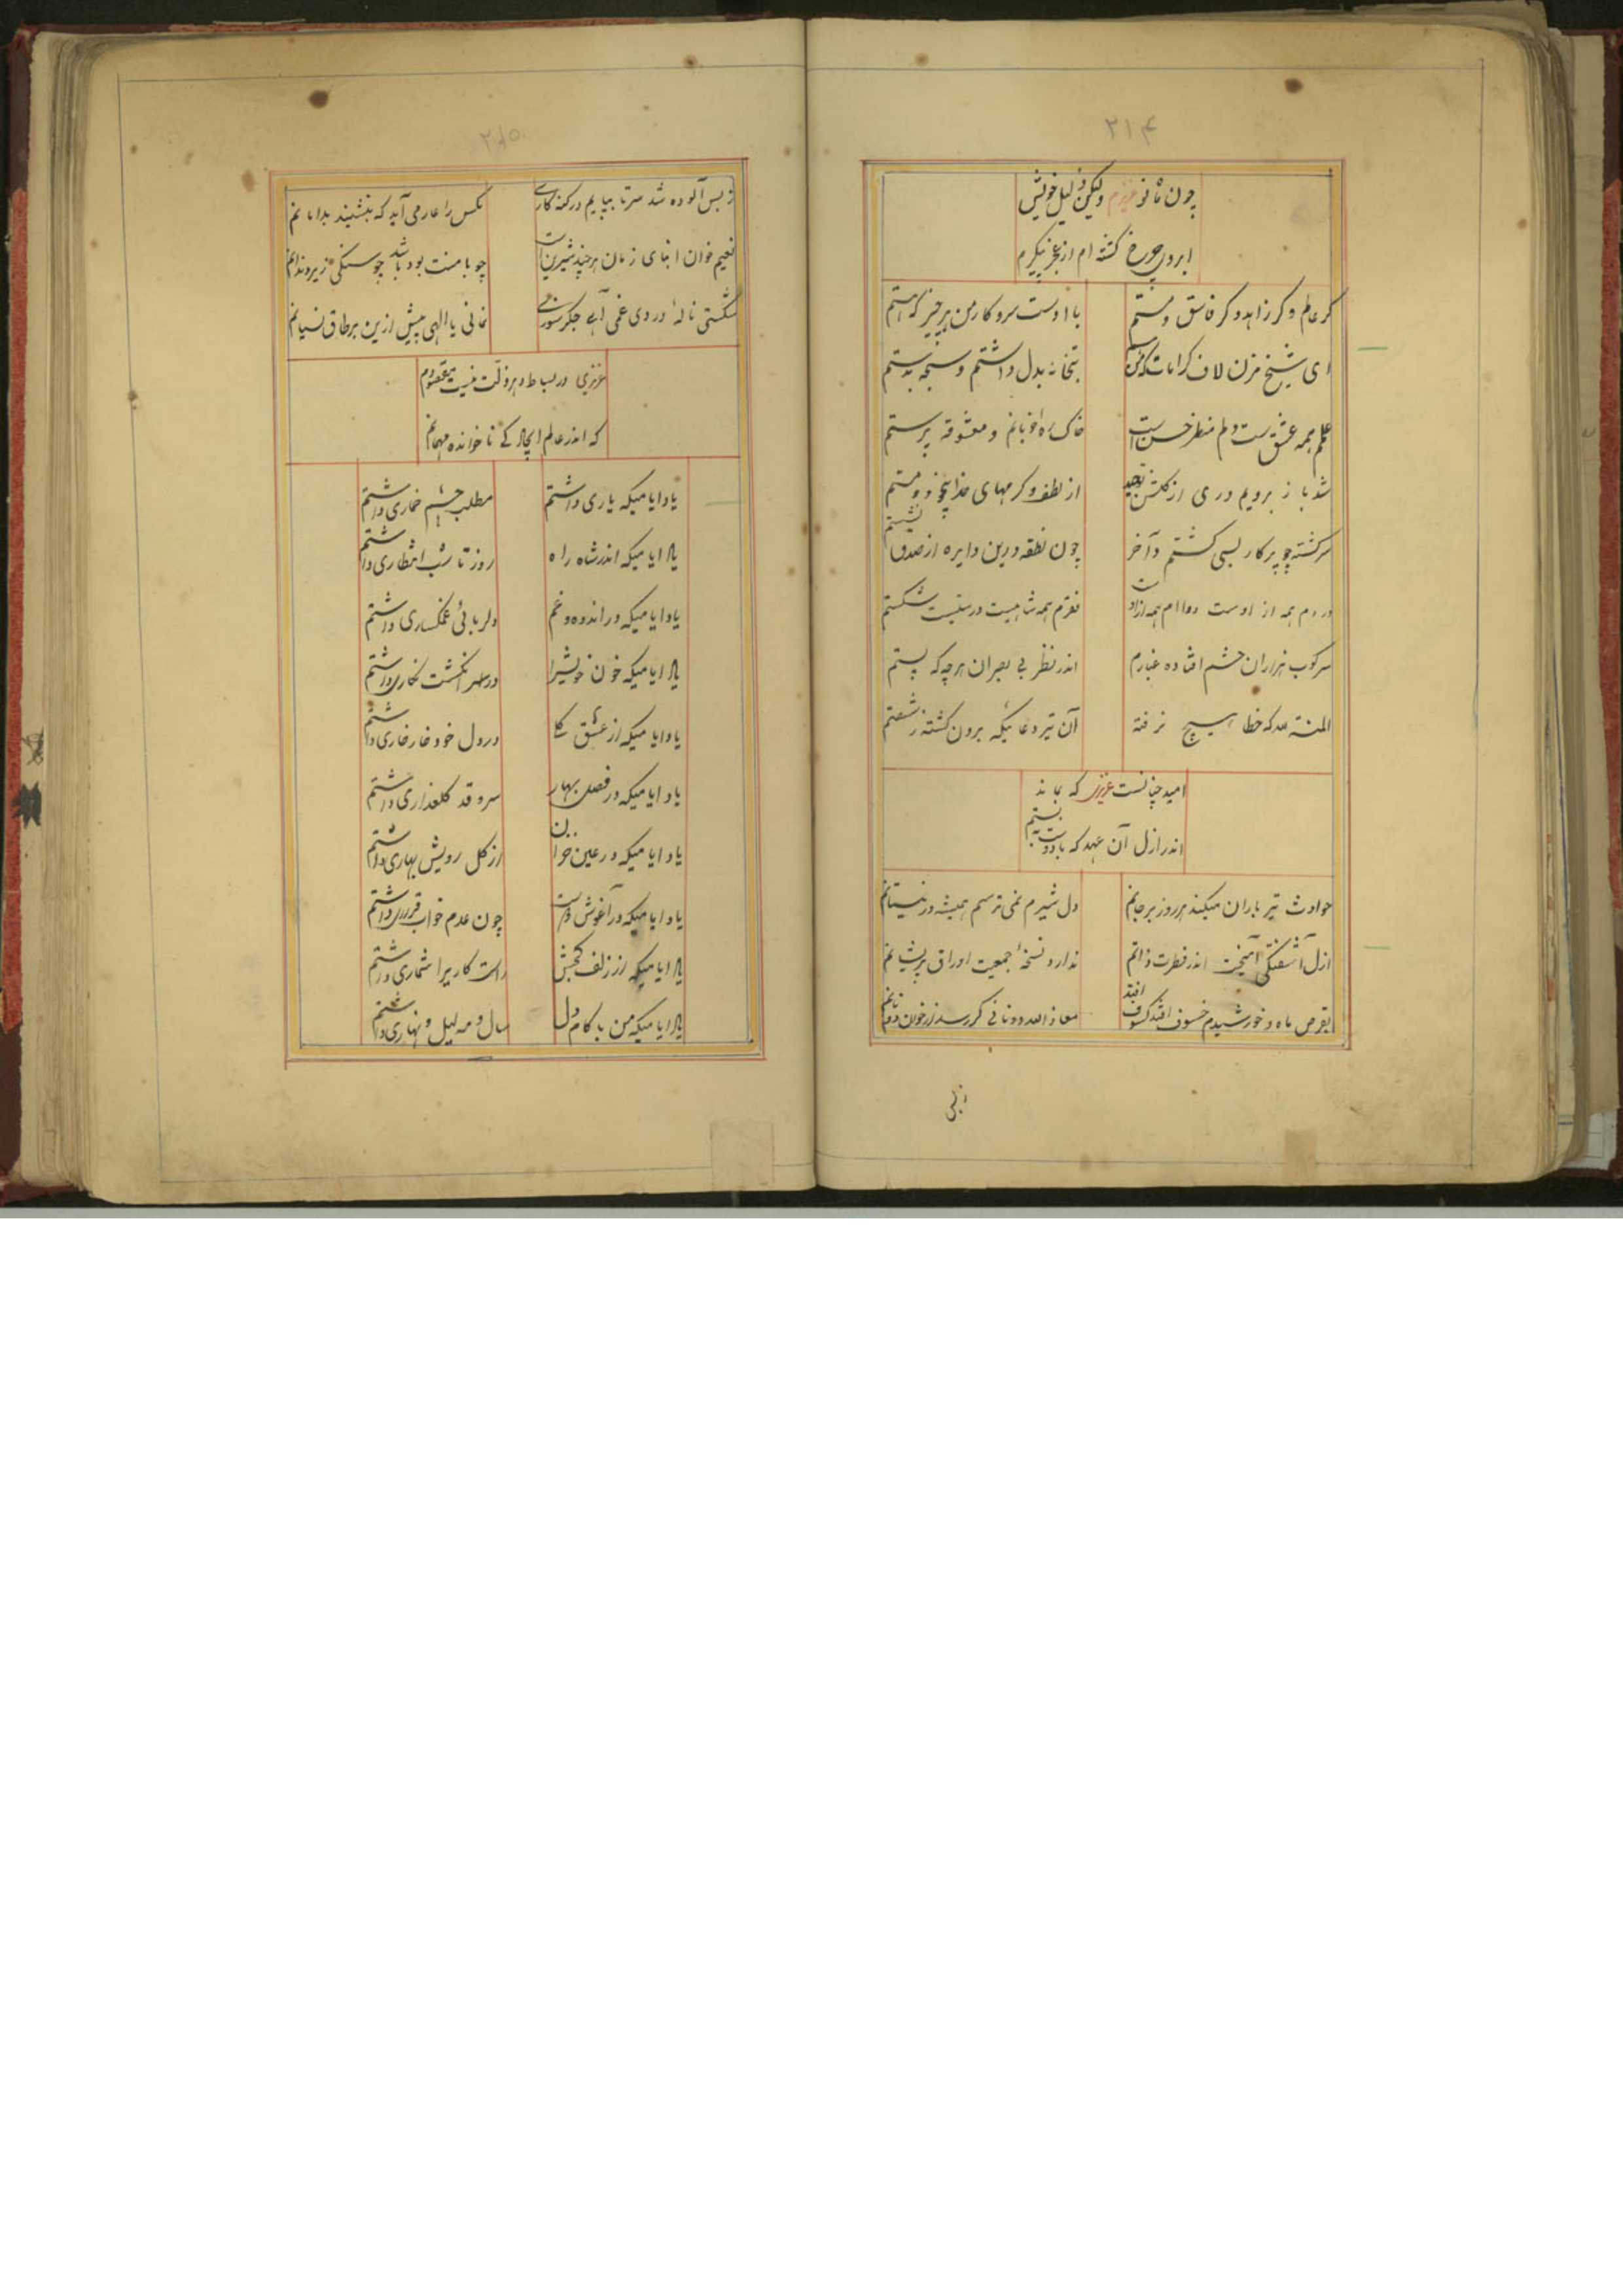 ۲۱۴
چون شانو عزیزم ولیکن ذلیل خویش
ابروی چرخ گشته ام از عجز پیکرم
گر عالم و گر زاهد و گر فاسق و مستم
با اوست سر و کار من هر چیز که هستم
ای شیخ مزن لاف کرامات که من
بتخانه بدل داشتم و سبحه بدستم
علم همه عشق ست و دلم منظر حسن است
خاک ره خوبانم و معشوقه پرستم
شد باز برویم دری از گلشن توحید
از لطف و کرمهای خدا
سرگشته چو پرکار بسی گشتم و آخر
چون نقطه درین دایره از صدق نشستم
دردم همه از اوست دواام همه از اوست
فقرم همه شاهیست درستیست شکستم
سرکوب هزاران حشم افتاده غبارم
اندر نظر بی بصران هر چه که پستم
المنة لله که خطا هیچ نرفته
آن تیر دعائیکه برون گشته ز شصتم
امید چنانست عزیزی که بماند
اندر ازل آن عهد که با دوست ببستم
حوادث تیر باران میکند هر روز بر جانم
دل شیرم نمی ترسم همیشه در نیستانم
ازل آشفتگی آمیخت اندر فطرت ذاتم
ندارد نسخهٔ جمعیت اوراق پریشانم
بقرص ماه و خورشیدم خسوف افتد کسوف افتد
معاذ الله دو نانی گر رسد از خوان دونانم
زبس
۲۱۵
ز بس آلوده شد سر تا بپایم در گنه کاری
مگس را عار می آید که بنشیند بدامانم
نعیم خوان ابنای زمان هر چند شیرین است
چو با منت بود باشد چو سنگی زیر دندانم
شکستی ناله دردی غمی آهی جگر سوزی
نمانی یا الهی بیش ازین بر طاق نسیانم
عزیزی در بساط دهر ذلت نیست مقصودم
که اندر عالم ایجاد کی ناخوانده مهمانم
یاد ایامیکه یاری داشتم
مطلب چشم خماری داشتم
یاد ایامیکه اندر شاه راه
روز تا شب انتظاری داشتم
یاد ایامیکه در اندوه و غم
دلربائی غمگساری داشتم
یاد ایامیکه خون خویش را
در سر انگشت نگاری داشتم
یاد ایامیکه از عشق
در دل خود خار خاری داشتم
یاد ایامیکه در فصل بهار
سرو قد گلعذاری داشتم
یاد ایامیکه در عین خزان
از گل رویش بهاری داشتم
یاد ایامیکه در آغوش دوست
چون عدم خواب قراری داشتم
یاد ایامیکه از زلف کجش
راست کار بی شماری داشتم
یاد ایامیکه من با کام دل
سال و مه لیل و نهاری داشتم